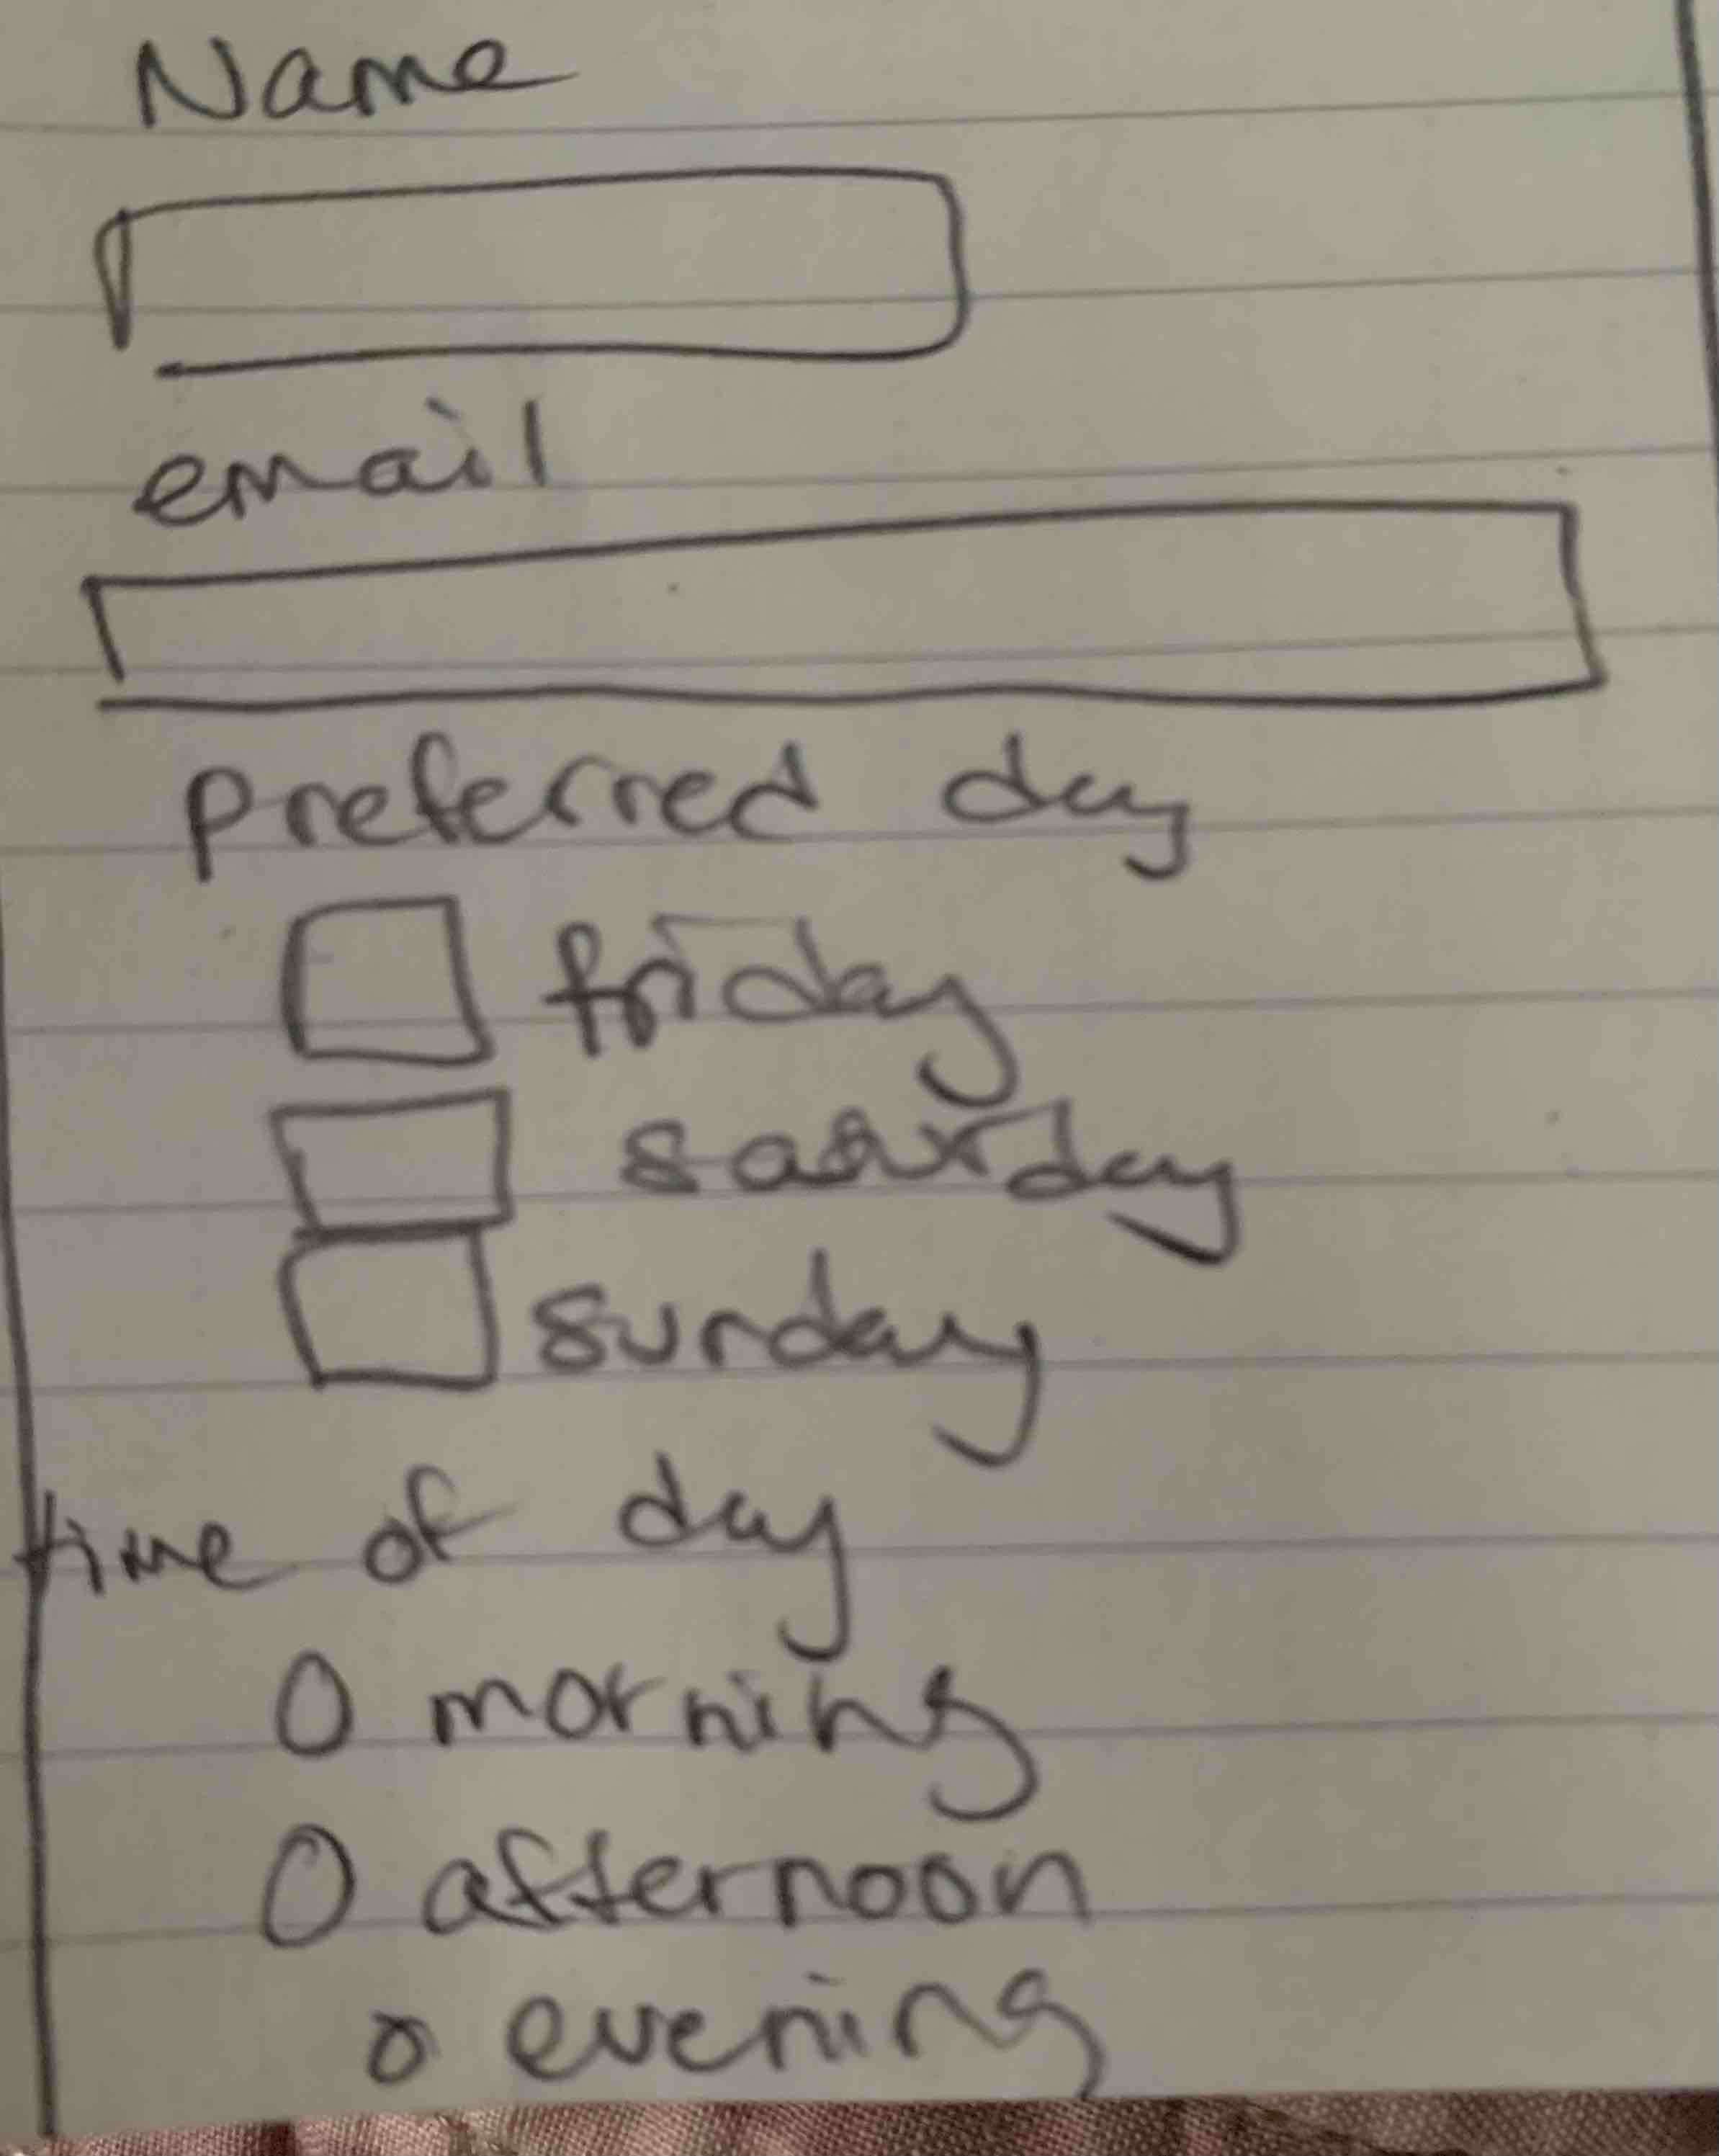 Name
email
preferred day
friday
saturday
sunday
time of day
morning
afternoon
evening